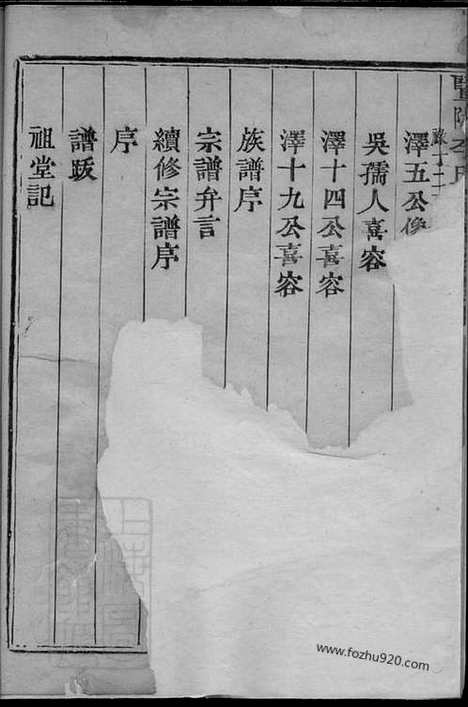 澤五公像
吳孺人喜容
澤十四公喜容
澤十九公喜容
族譜序
宗譜弁言
續修宗譜序
序
譜跋
祖堂記
www.fozhu920.com